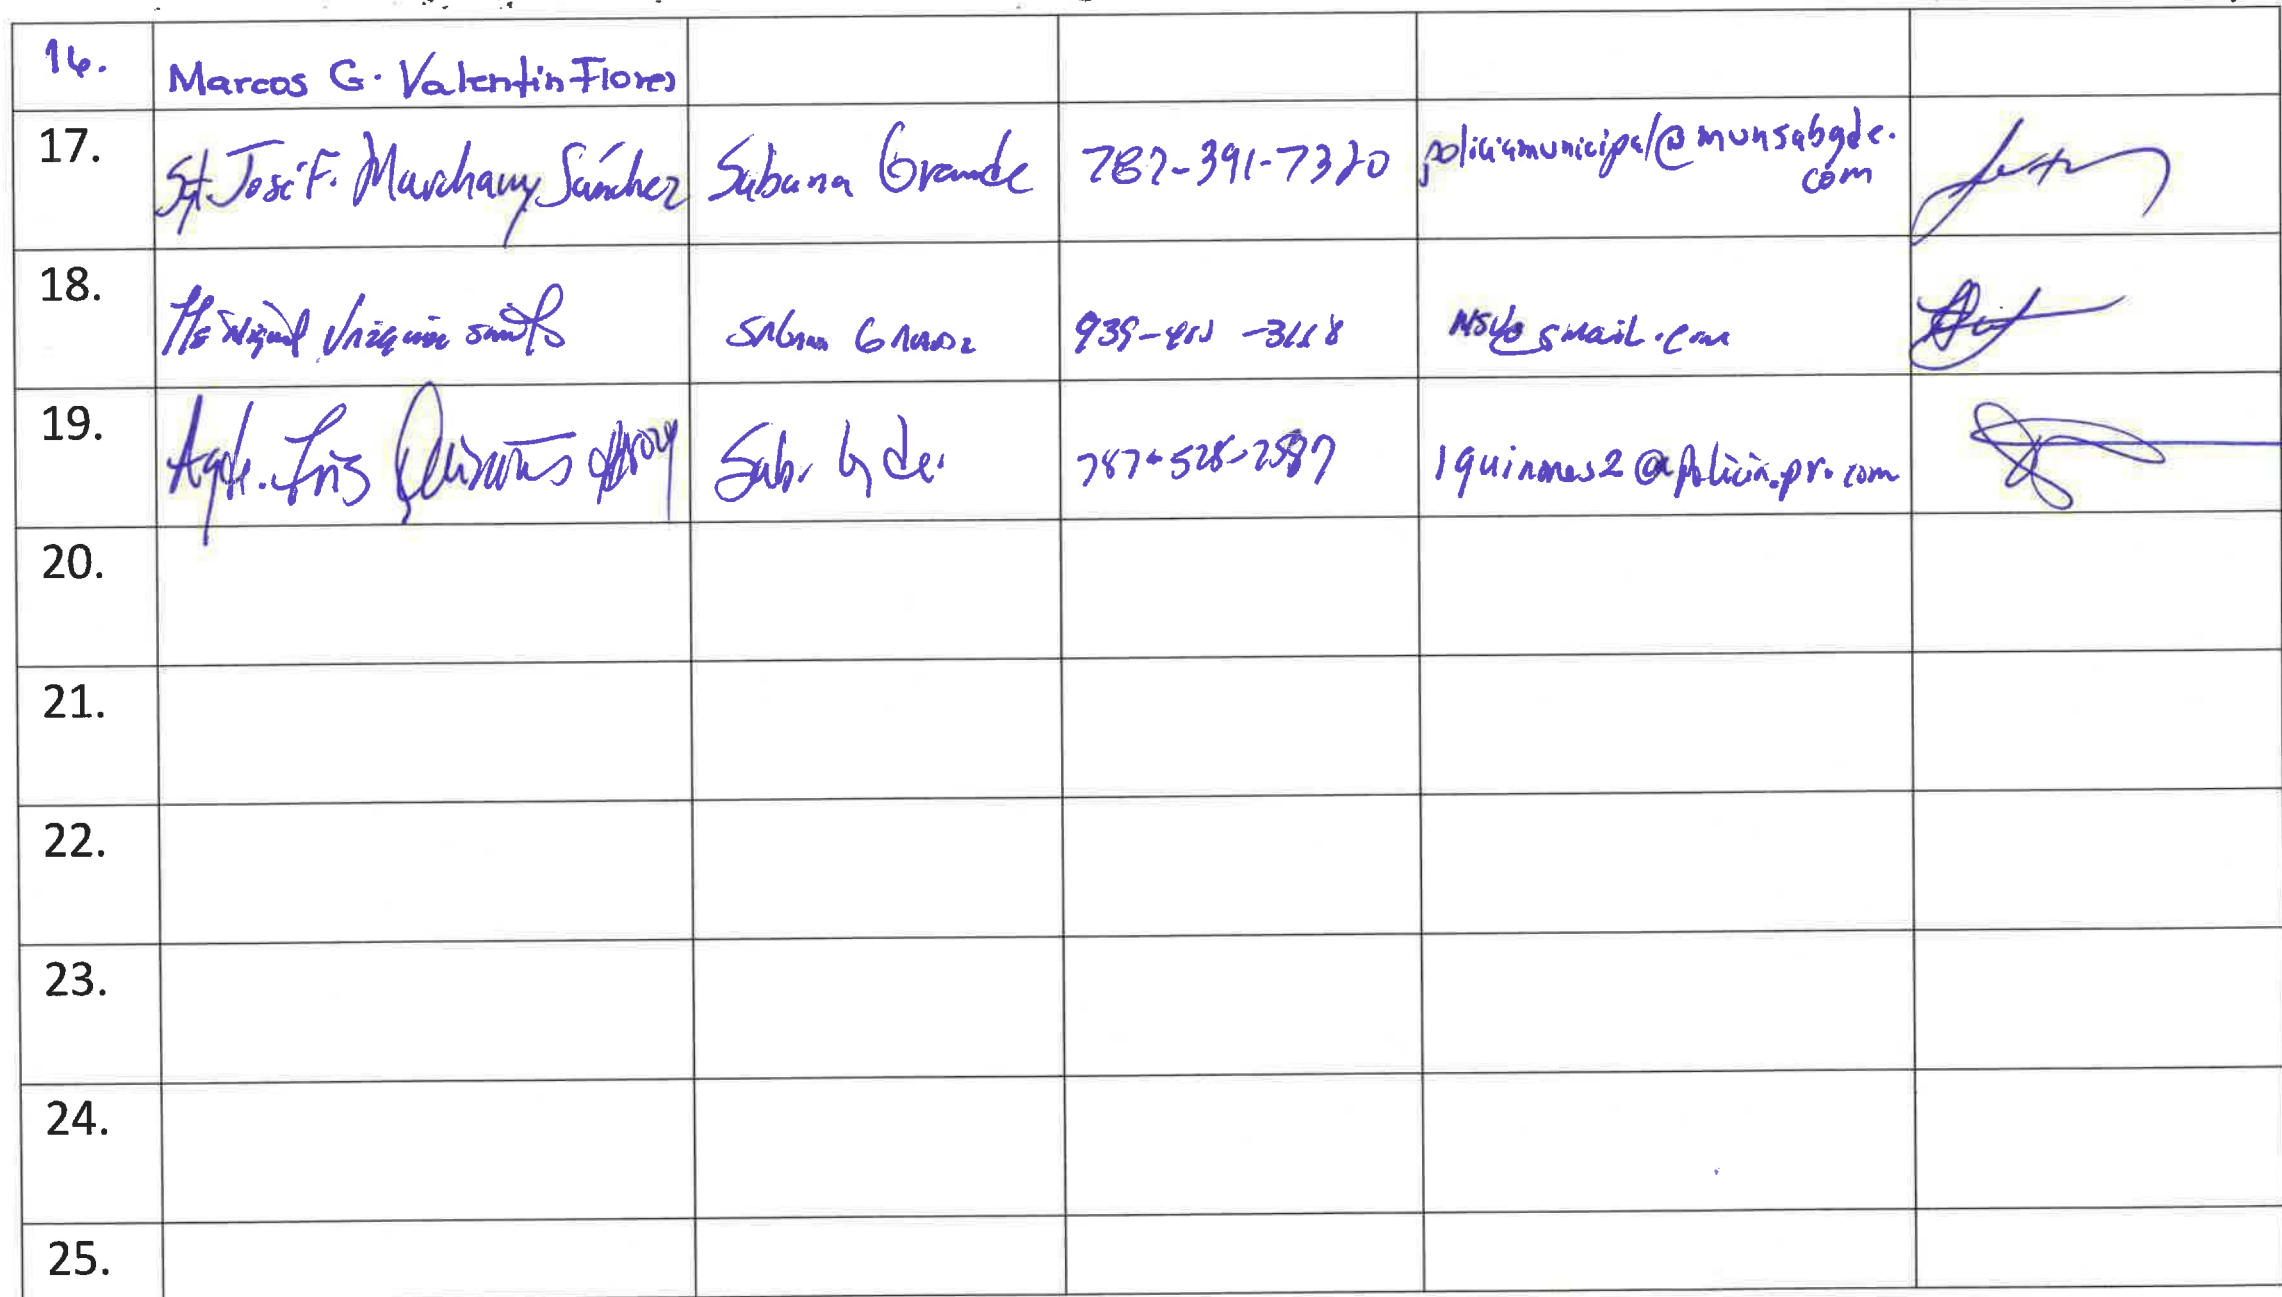 16. Marcos G. Valentin Flores
17. Sgt. José F. Marchany Sánchez Sabana Grande 787-391-7320 policiamunicipal@munsabgde.
com
18. Sabana Grande 939- gmail.com
19. Agte. Iris Quiñones Sab. Gde. 787-528-2587 iquinones2@policia.pr.com
20.
21.
22.
23.
24.
25.